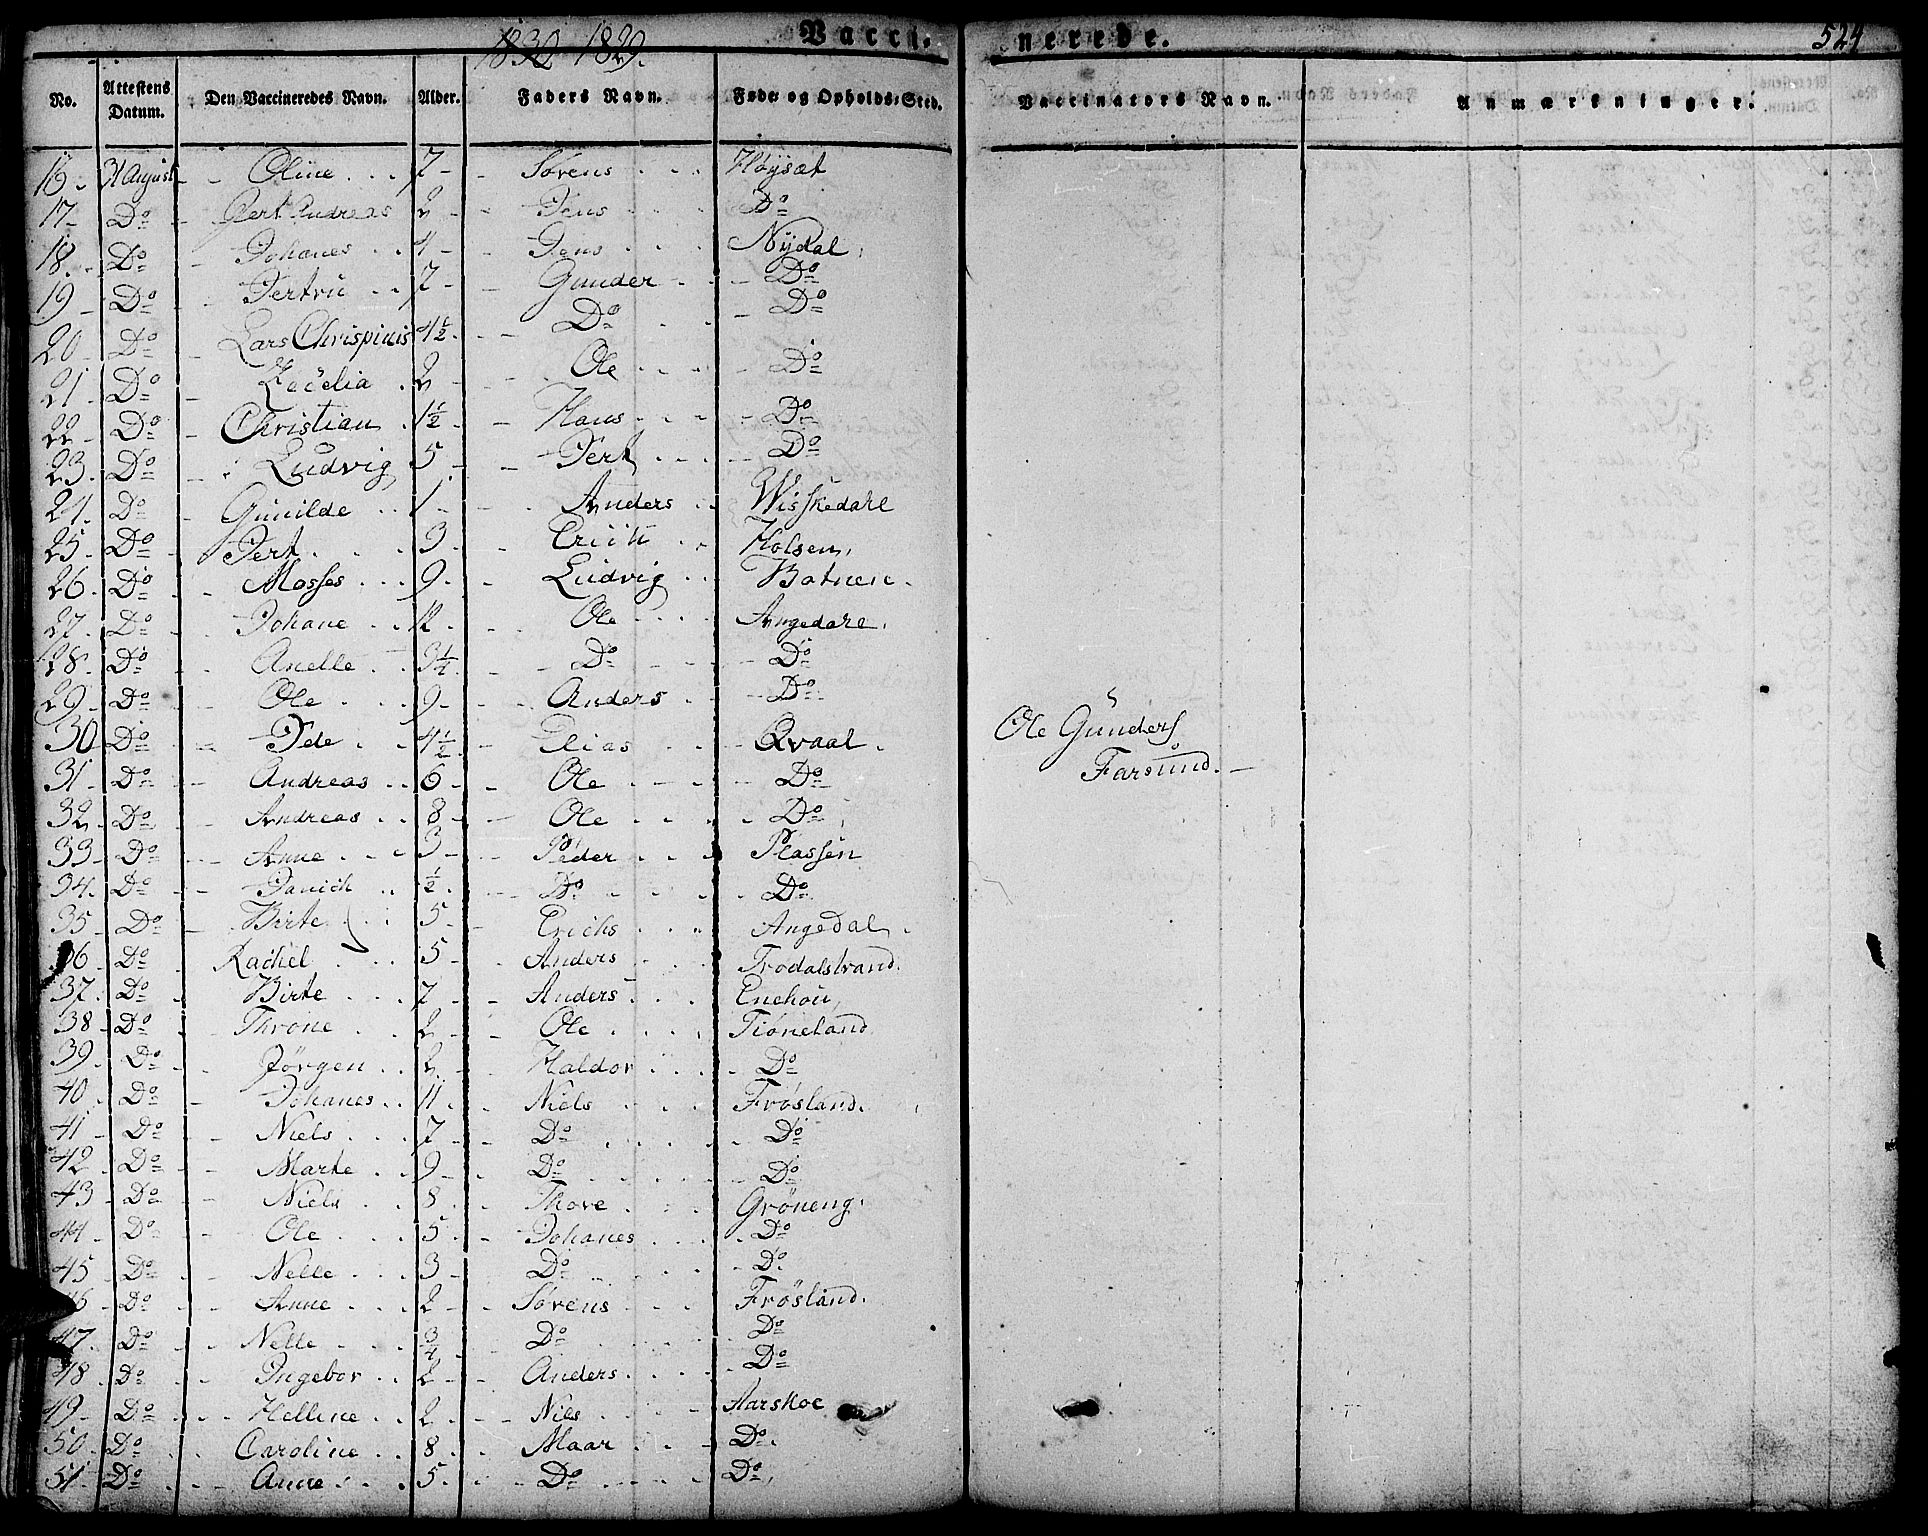 1830 1829. Vacci- nerede. 524
No. Attestens Datum. Den Vaccineredes Navn. Alder. Faders Navn. Føde og Opholds-Sted. Vaccinators Navn. Anmærkninger.
16. 31 August Oline 7 Sørens Høysæt
17 Do Gert Andreas 2 Jens Do
18. Do Johanes 4 Jens Nydal
19 Do Jertru 7 Gunder Do
20 Do Lars Chrispinis 4 1/2 Do Do
21 Do 2 Ole Do
22 Do Christian 1 1/2 Hans Do
23. Do Ludvig 5 Pert Do
24. Do Gunilde 1 Anders Wisskedahl
25. Do Pert 3 Erich Holsen
26. Do Mosses 9 Ludvig Botnen
27. Do Johane 12 Ole Angedahl
28. Do Anelle 3 1/4 Do Do
29 Do Ole 9 Anders Do
30 Do Peder 4 1/2 Elias Qvaal
Ole Gunders
31 Do Andreas 6 Ole Do
Farsund.
32 Do Andreas 8 Ole Do
33 Do Anne 3 Peder Plassen
34. Do 1/2 Do Do
35 Do Birte 5 Erichs Angedal
36 Do Rachel 5 Anders Trodalstrand
37. Do Birte 7 Anders Enehou
38 Do Throne 2 Ole Tiøneland
39. Do Jørgen 2 Haldor Do
40. Do Johanes 11 Niels Frøsland.
41 Do Niels 7 Do Do
42 Do Marte 9 Do Do
43 Do Niels 8 Thore Grøneng
44 Do Ole 5 Johanes Do
45 Do Nelle 3 Do Do
46 Do Anne 2 Sørens Frøsland.
47. Do Nelle 3/4 Do Do
48 Do Ingebor 2 Anders Do
49 Do Helline 2 Niels Aarskoe
50 Do Caroline 8 Maar Do
51 Do Anne 5 Do Do